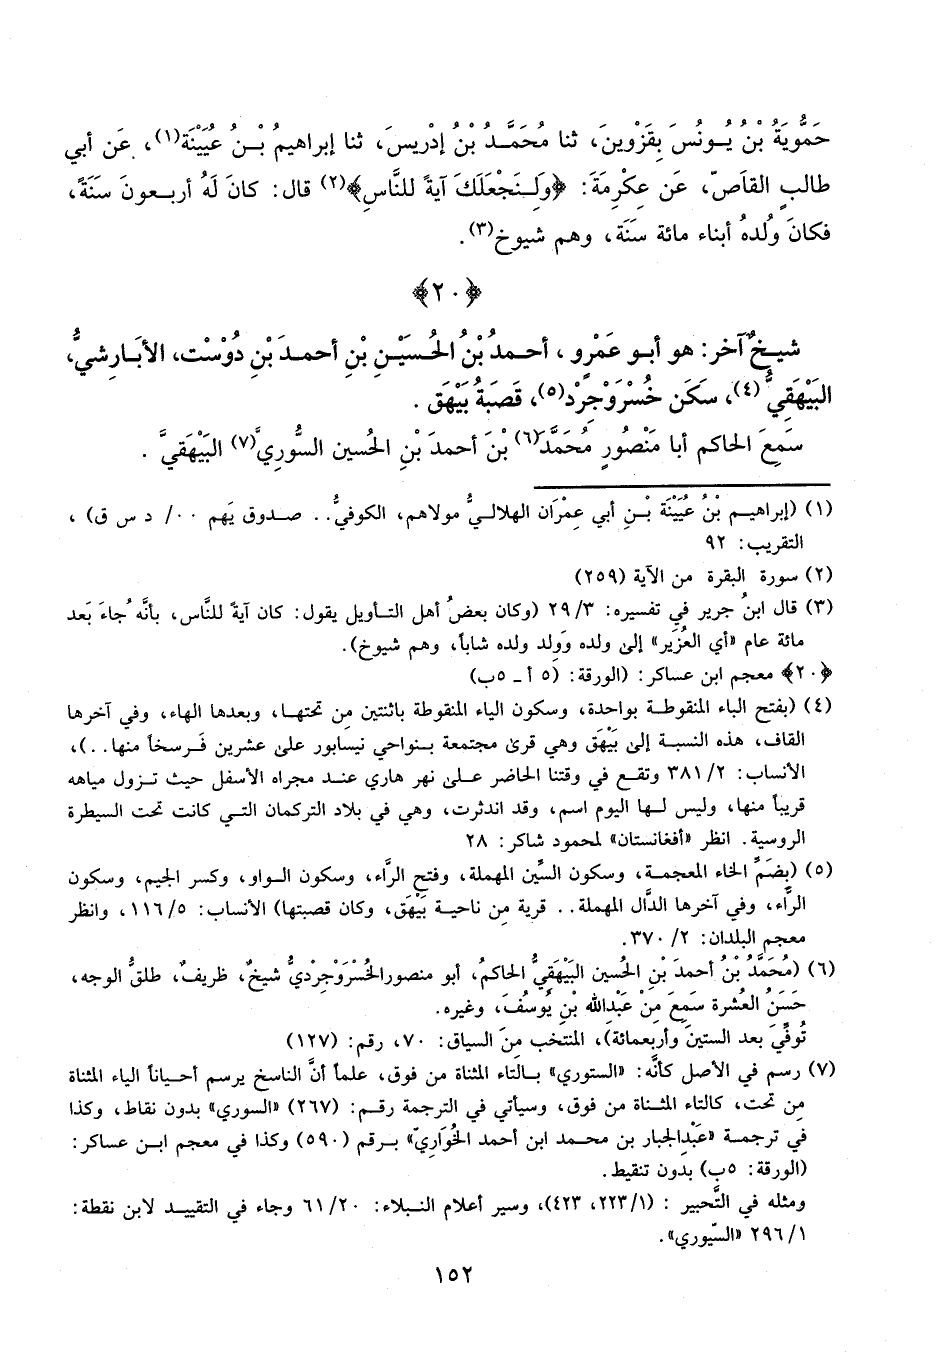 حَمُّويَةُ بْنُ يُونُسَ بِقَزْوِينَ، ثنا مُحَمَّدُ بْنُ إدْرِيسَ، ثنا إبراهيمُ بْنُ عُيَيْنَة(١)، عَن أبي
طالبٍ القاصّ، عَن عِكرِمَةَ: ﴿ولِنَجْعَلَكَ آيةً للنَّاسِ﴾(٢) قال: كانَ لَهُ أربعونَ سَنَةً،
فكانَ وُلدهُ أبناء مائة سَنَة، وهم شيوخ(٣).
﴿٢٠﴾
شيخٌ آخر: هو أبو عَمْرٍو، أحمدُ بْنُ الحُسَيْنِ بْنِ أحمدَ بْنِ دُوْسْت، الأبَارِشيُّ،
البَيْهَقيُّ(٤)، سَكَن خُسْرَوْجِرْد(٥)، قَصَبَةُ بَيْهَق.
سَمِعَ الحاكم أبا مَنْصُورٍ مُحَمَّدَ(٦) بْنَ أحمدَ بْنِ الحُسين السُّوريَّ(٧) البَيْهَقيَّ.
(١) (إبراهيم بْنُ عُيَيْنَة بْنِ أبي عِمْرَان الهلاليُّ مولاهم، الكوفيُّ.. صدوق يَهم ٠٠/ د س ق)،
التقريب: ٩٢
(٢) سورة البقرة من الآية (٢٥٩)
(٣) قال ابنُ جرير في تفسيره: ٢٩/٣ (وكان بعضُ أهل التأويل يقول: كان آيةً للنَّاس، بأنَّه جاءَ بَعد
مائة عام «أي العُزَير» إلى ولده وَولد ولده شاباً، وهم شيوخ).
﴿٢٠﴾ معجم ابن عساكر: (الورقة: (٥ أ ـ ٥ب)
(٤) (بفتح الباء المنقوطة بواحدة، وسكون الياء المنقوطة باثنتين مِن تحتها، وبعدها الهاء، وفي آخرها
القاف، هذه النسبة إلى بَيْهَق وهي قرىً مجتمعة بنواحي نيسابور على عشرين فَرسخاً منها..)،
الأنساب: ٣٨١/٢ وتقع في وقتنا الحاضر على نهر هاري عند مجراه الأسفل حيث تزول مياهه
قريباً منها، وليس لها اليوم اسم، وقد اندثرت، وهي في بلاد التركمان التي كانت تحت السيطرة
الروسية. انظر «أفغانستان» لمحمود شاكر: ٢٨
(٥) (بِضَمِّ الخاء المعجمة، وسكون السِّين المهملة، وفتح الرَّاء، وسكون الواو، وكسر الجيم، وسكون
الرَّاء، وفي آخرها الدَّال المهملة.. قرية مِن ناحية بَيْهَق، وكان قصبتها) الأنساب: ١١٦/٥، وانظر
معجم البلدان: ٣٧٠/٢.
(٦) (مُحَمَّدُ بْنُ أحمدَ بْنِ الحُسين البَيْهَقيُّ الحاكمُ، أبو منصور الخُسْرَوْجِرْديُّ شيخٌ، ظريفٌ، طلقُ الوجه،
حَسَنُ العُشرة سَمِعَ مِنْ عَبْدالله بْنِ يُوسُفَ، وغيره.
تُوفِّيَ بعد الستينَ وأربعمائة)، المنتخب مِنَ السياق: ٧٠، رقم: (١٢٧)
(٧) رسم في الأصل كأنَّه: «الستوري» بالتاء المثناة من فوق، علماً أنَّ الناسخ يرسم أحياناً الياء المثناة
مِن تحت، كالتاء المثناة من فوق، وسيأتي في الترجمة رقم: (٢٦٧) «السوري» بدون نقاط، وكذا
في ترجمة «عَبْدالجبار بن محمد ابن أحمد الخُوَاريّ» برقم (٥٩٠) وكذا في معجم ابن عساكر:
(الورقة: ٥ب) بدون تنقيط.
ومثله في التَّحبير : (٢٢٣/١، ٤٢٣)، وسير أعلام النبلاء: ٦١/٢٠ وجاء في التقييد لابن نقطة:
٢٩٦/١ «السّيوري».
١٥٢